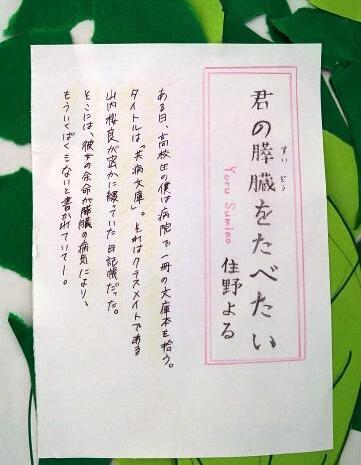 君の膵臓をたべたい
すいぞう
Yoru Sumino
住野よる
ある日、高校生の僕は病院で一冊の文庫本を拾う。
タイトルは「共病文庫」。それはクラスメイトである
山内桜良が密かに綴っていた日記帳だった。
そこには、彼女の余命が膵臓の病気により、
もういくばくもないと書かれていて―。